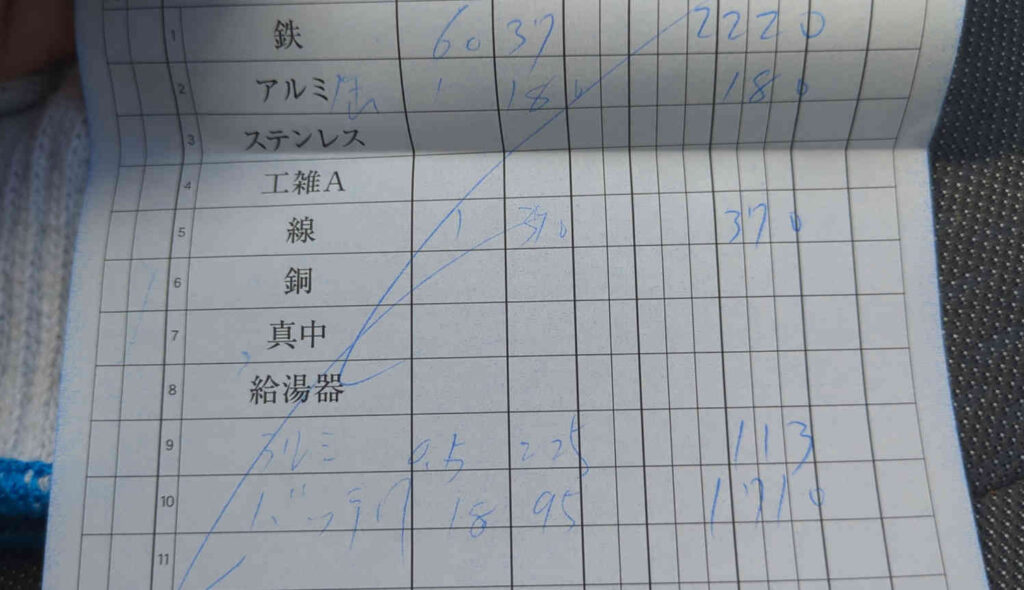 1 鉄 60 37 2220
2 アルミ 1 180 180
3 ステンレス
4 工雑A
5 線 1 370 370
6 銅
7 真中
8 給湯器
9 アルミ 0.5 225 113
10 バッテリ 18 95 1710
11